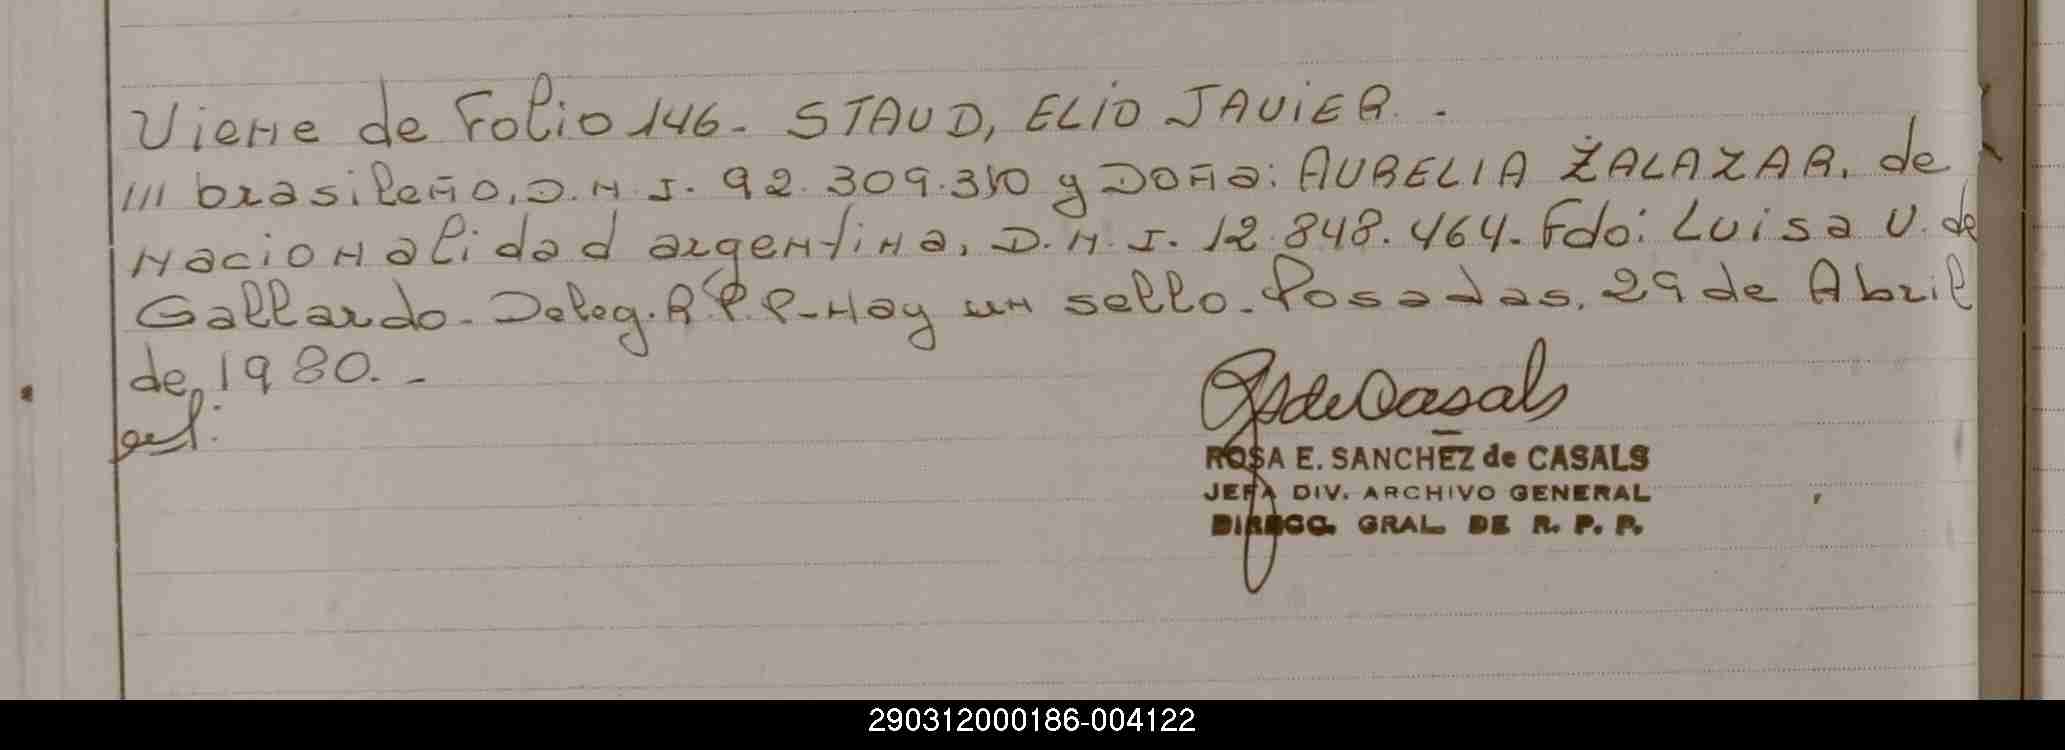 Viene de Folio 146. STAUD, ELIO JAVIER. -
/// brasileño, D.N.I. 92.309.310 y DOÑA: AURELIA ZALAZAR, de
nacionalidad argentina, D.N.I. 12.848.464. Fdo: Luisa V. de
Gallardo. Deleg. R.P.P- Hay un sello. Posadas, 29 de Abril
de 1980. -
RSdeCasals
ROSA E. SANCHEZ de CASALS
JEFA DIV. ARCHIVO GENERAL
DIRECC. GRAL. DE R. P. P.
290312000186-004122